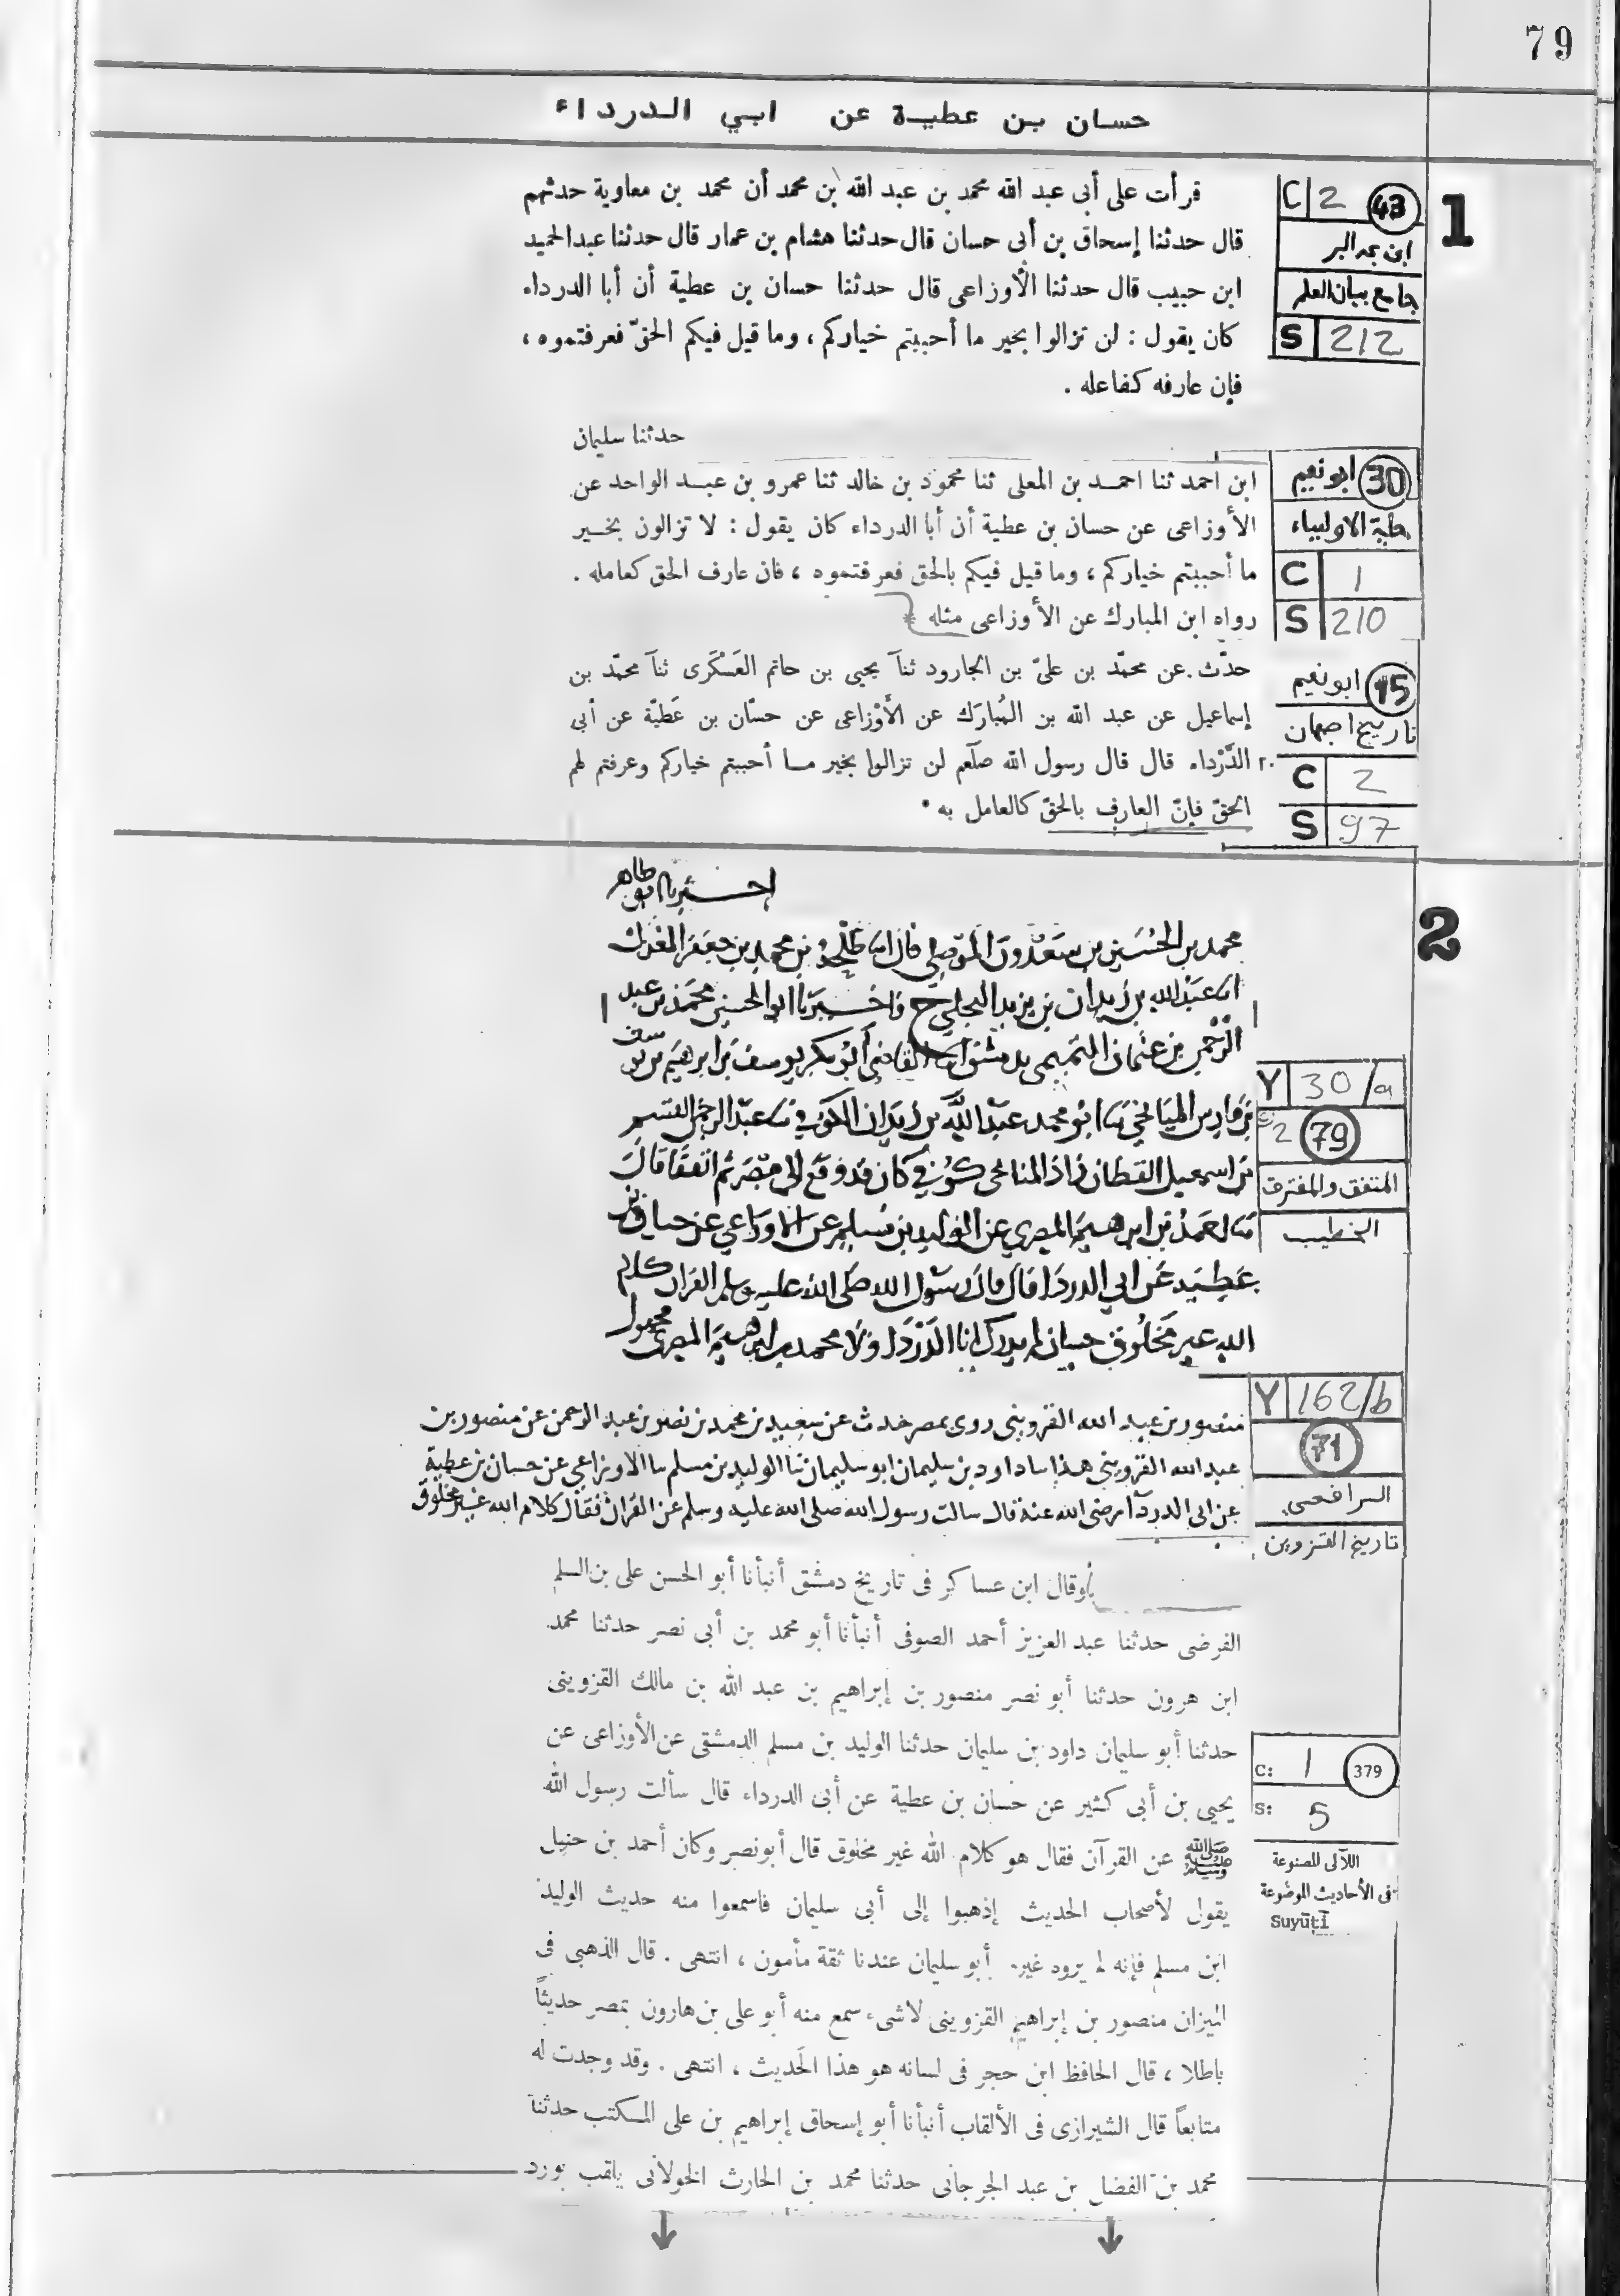 79
حسان بن عطية عن ابي الدرداء
1
C 2 43
ابن عبد البر
جامع بيان العلم
S 212
قرأت على أبى عبد الله محمد بن عبد الله بن محمد أن محمد بن معاوية حدثهم
قال حدثنا إسحاق بن أبى حسان قال حدثنا هشام بن عمار قال حدثنا عبد الحميد
ابن حبيب قال حدثنا الأوزاعى قال حدثنا حسان بن عطية أن أبا الدرداء
كان يقول : لن تزالوا بخير ما أحببتم خياركم ، وما قيل فيكم الحقّ فعرفتموه ،
فإن عارفه كفاعله .
30 ابو نعيم
حلية الاولياء
C 1
S 210
حدثنا سليمان
ابن احمد ثنا احمد بن المعلى ثنا محمود بن خالد ثنا عمرو بن عبد الواحد عن
الأوزاعى عن حسان بن عطية أن أبا الدرداء كان يقول : لا تزالون بخير
ما أحببتم خياركم ، وما قيل فيكم بالحق فعرفتموه ، فان عارف الحق كعامله .
رواه ابن المبارك عن الأوزاعى مثله *
15 ابو نعيم
تاريخ اصبهان
C 2
S 97
حدّث عن محمّد بن علىّ بن الجارود ثنآ يحيى بن حاتم العَسْكَرى ثنآ محمّد بن
إسماعيل عن عبد الله بن المُبارَك عن الأَوْزاعى عن حسّان بن عَطيّة عن أبى
٢٠ الدَّرْداء قال قال رسول الله صلّعم لن تزالوا بخير ما أحببتم خياركم وعرفتم لهم
الحقّ فإنّ العارف بالحقّ كالعامل به •
2
اخبرنا ابو طاهر
محمد بن الحسين بن سعدون الموصلي قال انا طلحة بن محمد بن جعفر المعدل
انا عبد الله بن زيدان بن يزيد البجلي ح واخبرنا ابو الحسين محمد بن عبد
الرحمن بن عثمان التميمي بدمشق انا القاضي أبو بكر يوسف بن
بن فارس الميانجي نا ابو محمد عبد الله بن زيدان الكوفي نا عبد الرحمن القسم
بن اسمعيل القطان زاد الميانجي كوفي كان قد وقع الى مصر ثم اتفقا قال
نا محمد بن ابرهيم المصري عن الوليد بن مسلم عن الاوزاعي عن حسان بن
عطية عن ابي الدردا قال قال رسول الله صلى الله عليه وسلم القران كلام
الله غير مخلوق حسان لم يدرك ابا الدردا ولا محمد بن ابرهيم المصري مجهول
Y 30/a
2 79
المتفق والمفترق
الخطيب
Y 162/b
71
الرافعي
تاريخ القزوين
منصور بن عبد الله القزويني روى بمصر حدث عن سعيد بن محمد بن نصر بن عبد الرحمن عن منصور بن
عبد الله القزويني هذا ثنا داود بن سليمان ابو سليمان ثنا الوليد بن مسلم ثنا الاوزاعي عن حسان بن عطية
عن ابي الدردآ رضى الله عنه قال سالت رسول الله صلى الله عليه وسلم عن القرآن فقال كلام الله غير مخلوق
وقال ابن عساكر فى تاريخ دمشق أنبأنا أبو الحسن على بن السلم
الفرضى حدثنا عبد العزيز أحمد الصوفى أنبأنا أبو محمد بن أبى نصر حدثنا محمد
ابن هرون حدثنا أبو نصر منصور بن إبراهيم بن عبد الله بن مالك القزوينى
حدثنا أبو سليمان داود بن سليمان حدثنا الوليد بن مسلم الدمشقى عن الأوزاعى عن
يحيى بن أبى كثير عن حسان بن عطية عن أبى الدرداء قال سألت رسول الله
ﷺ عن القرآن فقال هو كلام الله غير مخلوق قال أبو نصر وكان أحمد بن حنبل
يقول لأصحاب الحديث إذهبوا إلى أبى سليمان فاسمعوا منه حديث الوليد
ابن مسلم فإنه لم يروه غيره أبو سليمان عندنا ثقة مأمون ، انتهى . قال الذهبى فى
الميزان منصور بن إبراهيم القزوينى لاشىء سمع منه أبو على بن هارون بمصر حديثاً
باطلا ، قال الحافظ ابن حجر فى لسانه هو هذا الحديث ، انتهى . وقد وجدت له
متابعاً قال الشيرازى فى الألقاب أنبأنا أبو إسحاق إبراهيم بن على المكتب حدثنا
محمد بن الفضل بن عبد الجرجانى حدثنا محمد بن الحارث الخولانى يلقب بورد
C: 1 379
S: 5
اللآلى المصنوعة
فى الأحاديث الموضوعة
Suyūṭī